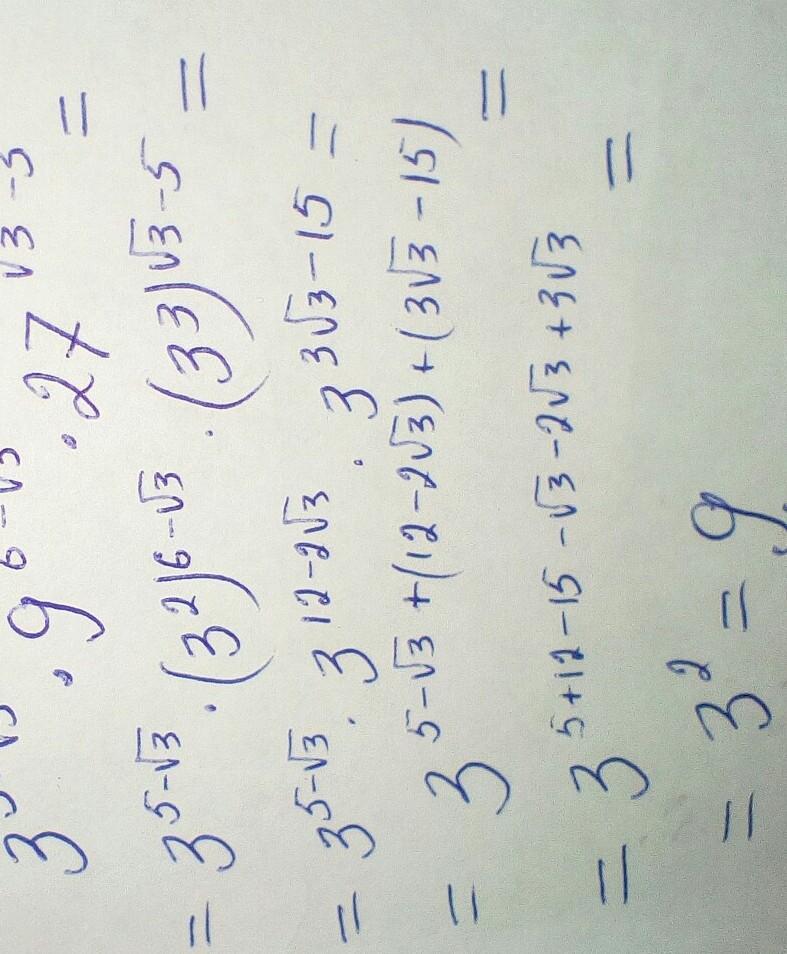 3^{5-√3} · 9^{6-√3} · 27^{√3-5} =
= 3^{5-√3} · (3^2)^{6-√3} · (3^3)^{√3-5} =
= 3^{5-√3} · 3^{12-2√3} · 3^{3√3-15} =
= 3^{5-√3+(12-2√3)+(3√3-15)} =
= 3^{5+12-15-√3-2√3+3√3} =
= 3^2 = 9